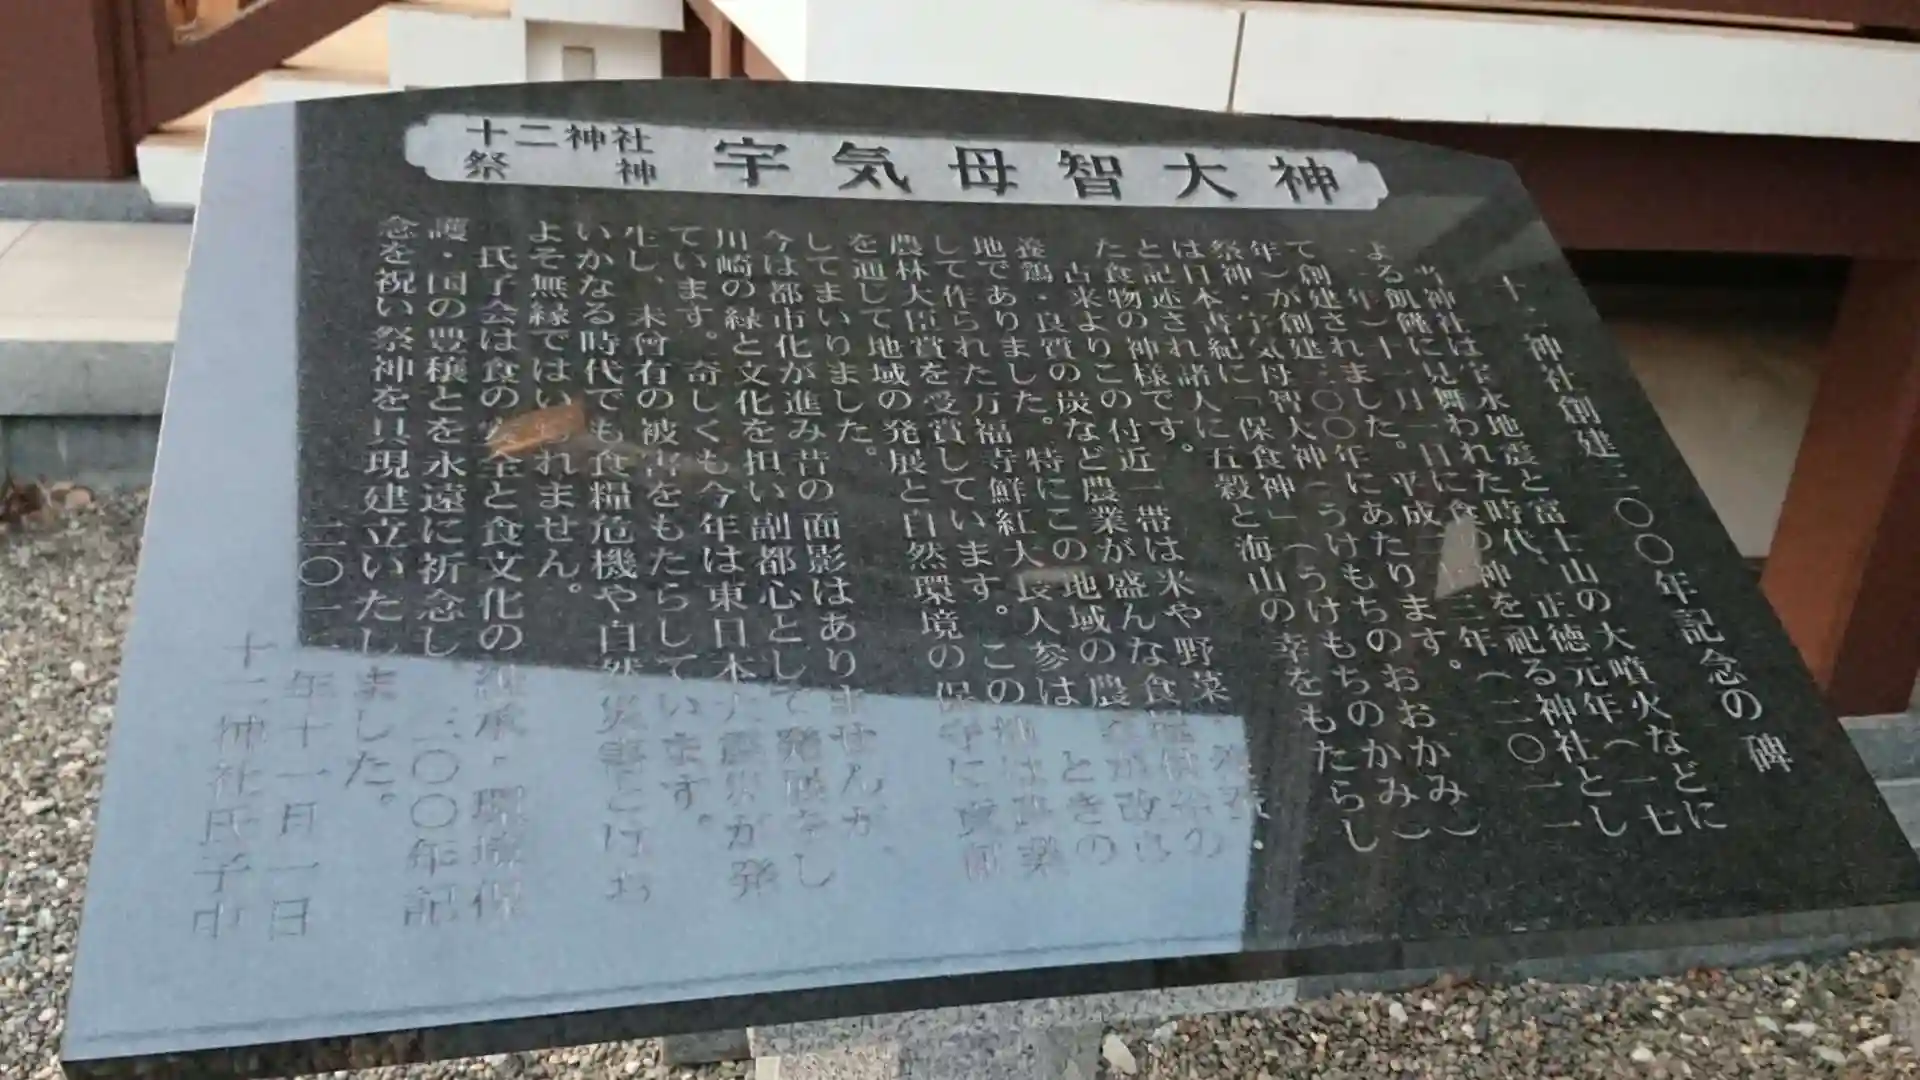 十二神社
祭神
宇気母智大神
十二神社創建三〇〇年記念の碑
当神社は宝永地震と富士山の大噴火などに
よる飢饉に見舞われた時代、正徳元年(一七
一一年)十一月一日に食の神を祀る神社とし
て創建されました。平成二十三年(二〇一一
年)が創建三〇〇年にあたります。
祭神・宇気母智大神(うけもちのおおかみ)
は日本書紀に「保食神」(うけもちのかみ)
と記述され諸人に五穀と海山の幸をもたらし
た食物の神様です。
古来よりこの付近一帯は米や野菜
養鶏・良質の炭など農業が盛んな食糧供給の
地でありました。特にこの地域の農
して作られた万福寺鮮紅大長人参は ときの
農林大臣賞を受賞しています。この地は農業
を通して地域の発展と自然環境の保守に貢献
してまいりました。
今は都市化が進み昔の面影はありませんが、
川崎の緑と文化を担い副都心として発展をし
ています。奇しくも今年は東日本大震災が発
生し、未曾有の被害をもたらしています。
いかなる時代でも食糧危機や自然災害とはお
よそ無縁ではいられません。
氏子会は食の安全と食文化の継承・環境保
護・国の豊穣とを永遠に祈念し、三〇〇年記
念を祝い祭神を具現建立いたしました。
二〇一一年十一月一日
十二神社氏子中